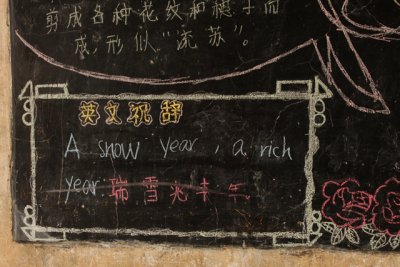 剪成各种花纹和穗子而
成,形似“流苏”。
英文祝辞
A snow year, a rich
year 瑞雪兆丰年